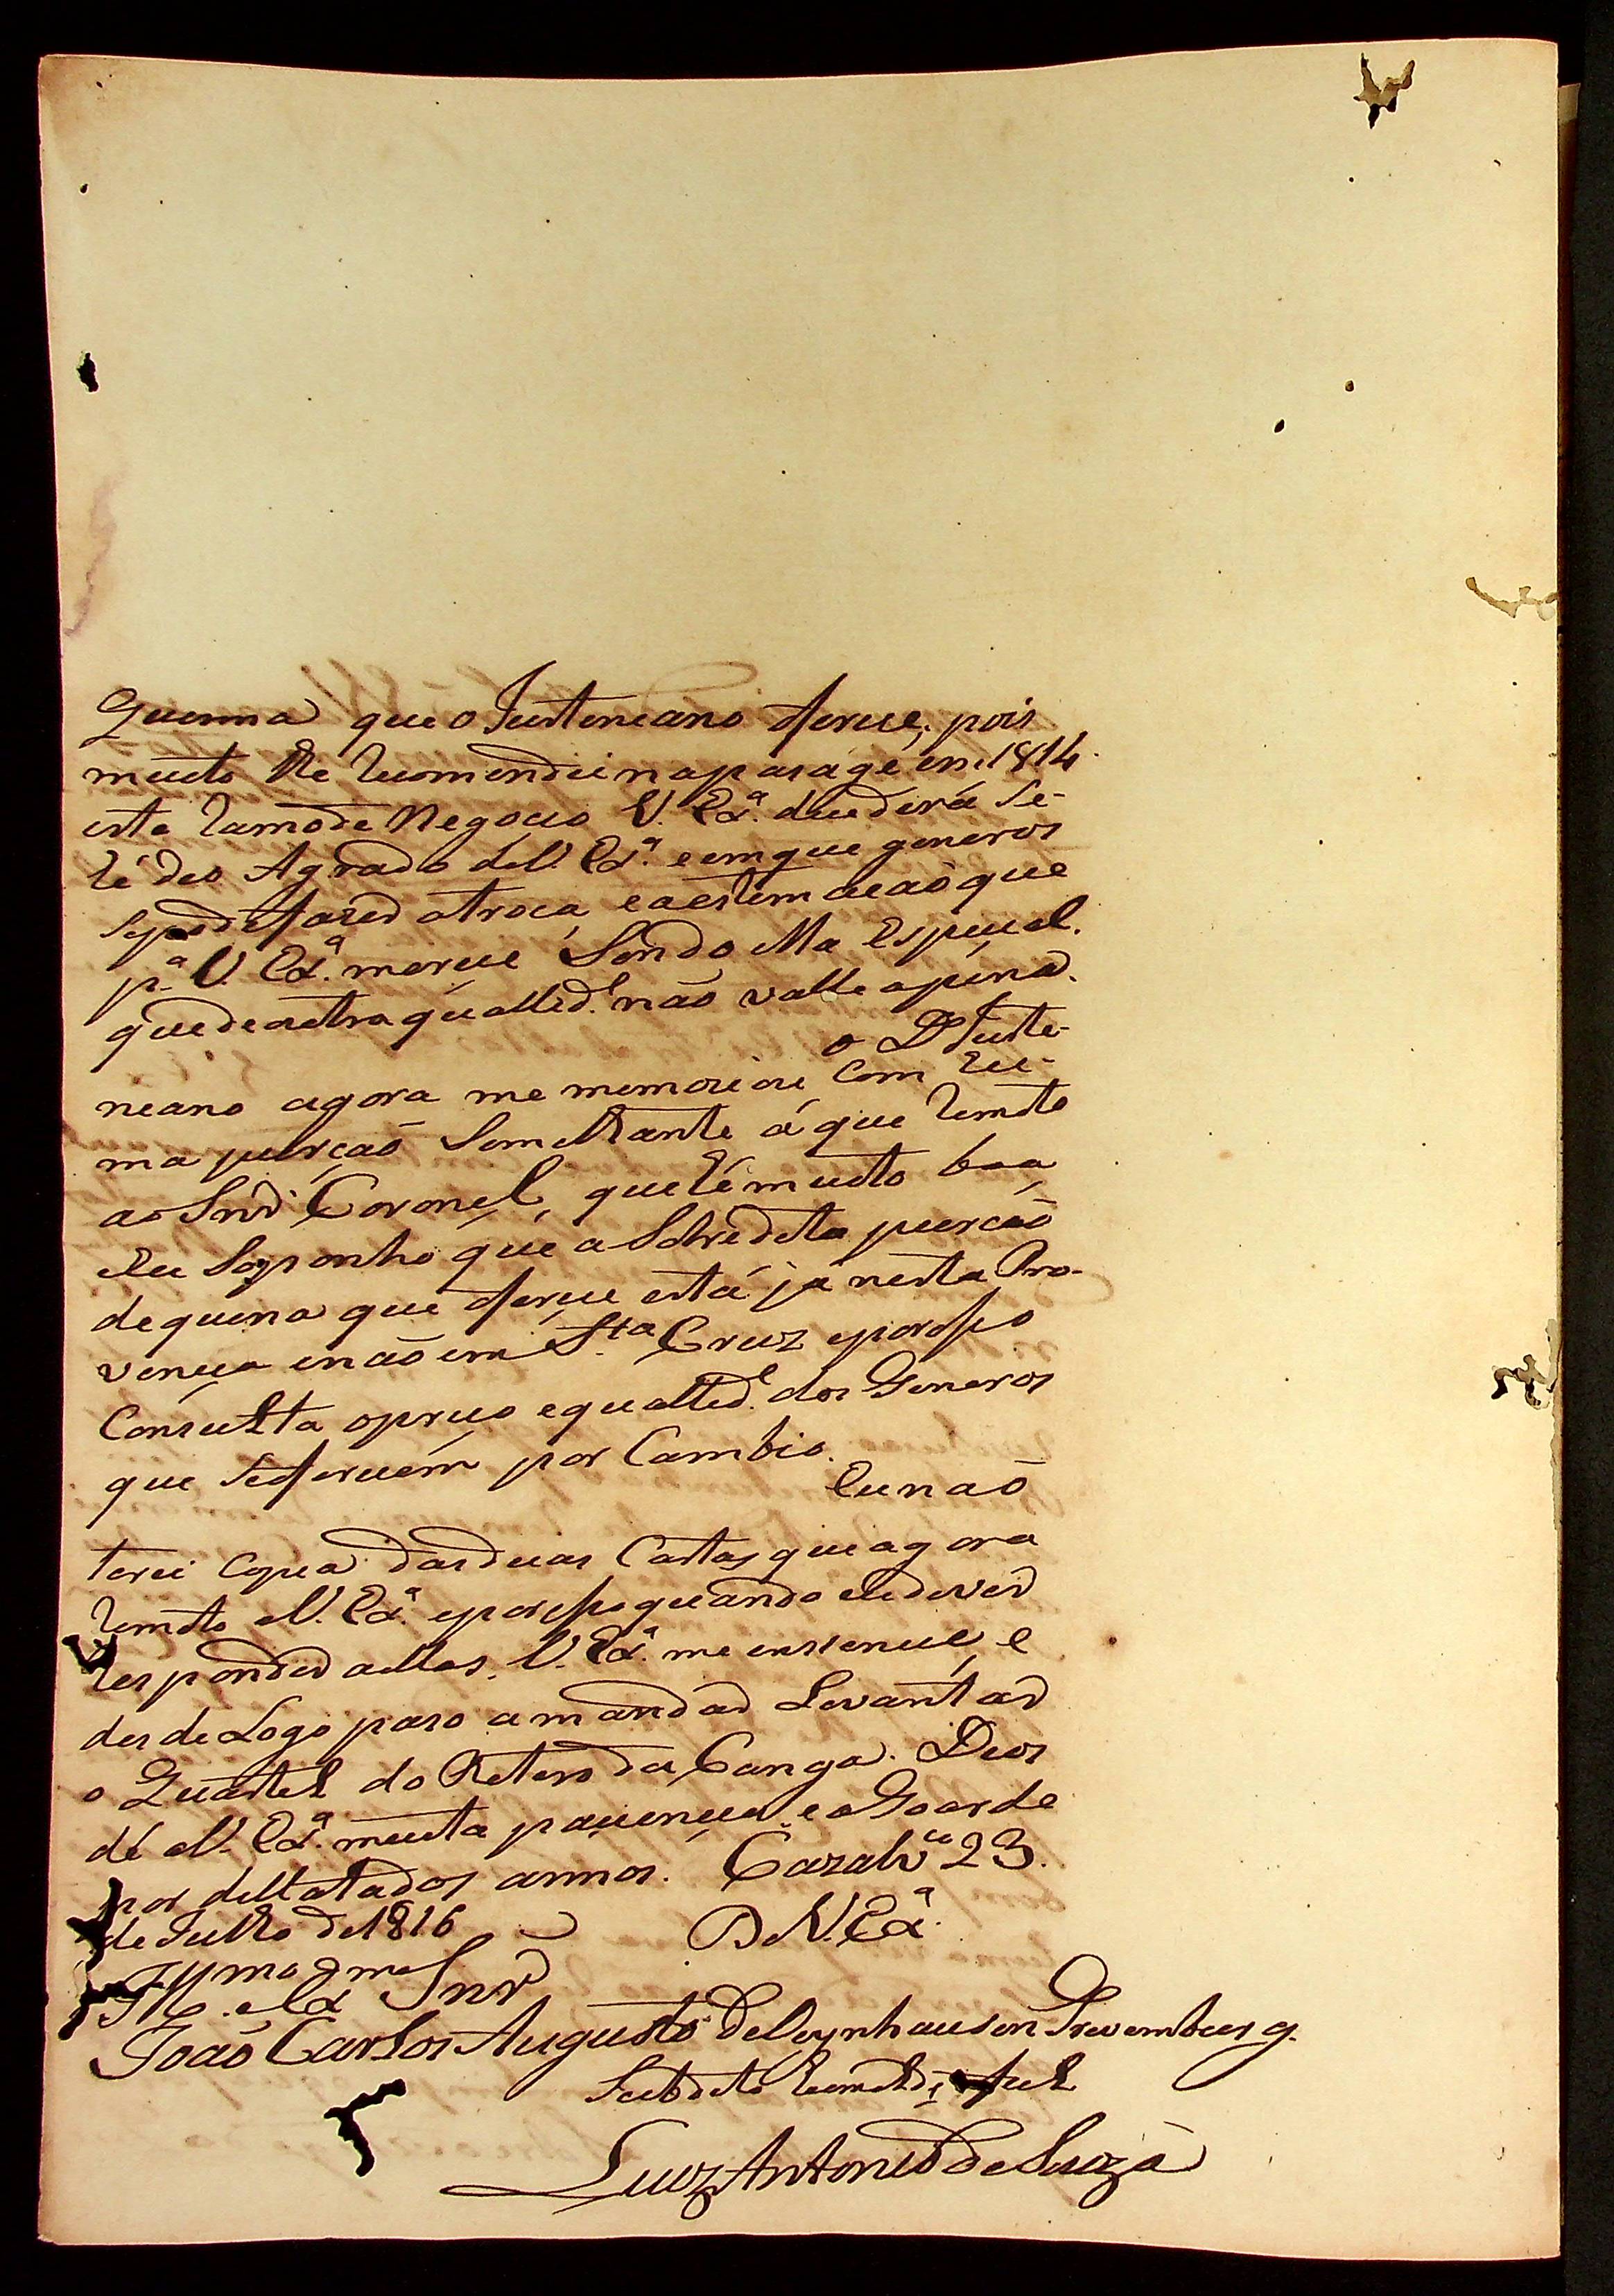 quenna que o Justeneano oferue, pois
muito lhe recomendei na parage em 1814
este ramo de Negocio V. Exª. decederá se
hé des Agrado de V. Exª. e em que generos
se pode fazer a troca, e a estimacaõ que
pª. V. Exª. merece Sendo Ella Especial.
que de outra quallidᵉ. não valle a pena.
o D. Juste-
neano agora me memoreou com hu-
ma purcaõ Semelhante á que remeto
ao Snr. Coronel, que hé muito boa,
Eu Soponho que a Sobredeta purcaõ
de quina que oferue está já nesta Pro-
vencia e naõ em Sta. Cruz e por eso
Consulta o preco e quallidᵉ. dos Generos
que se oferecem por Cambio.
Eu naõ
terei Copea das duas Cartas que agora
remeto a V. Exª. e por eso quando eu dever
responder a ellas, V. Exª. me ensenue, e
desde Logo paso a mandar Levantar
o Quartel do Retero da Canga. Deos
dé a V. Exª. muita pacencia e o Goarde
por delatados annos. Cazalvº. 23.
de Julho de 1816
D. V. Exª.
Illmo. e Exmo. Snr.
João Carlos Augusto de Oeynhausen Grevemburg.
Subdeto humilde e fiel
Luiz Antonio de Souza